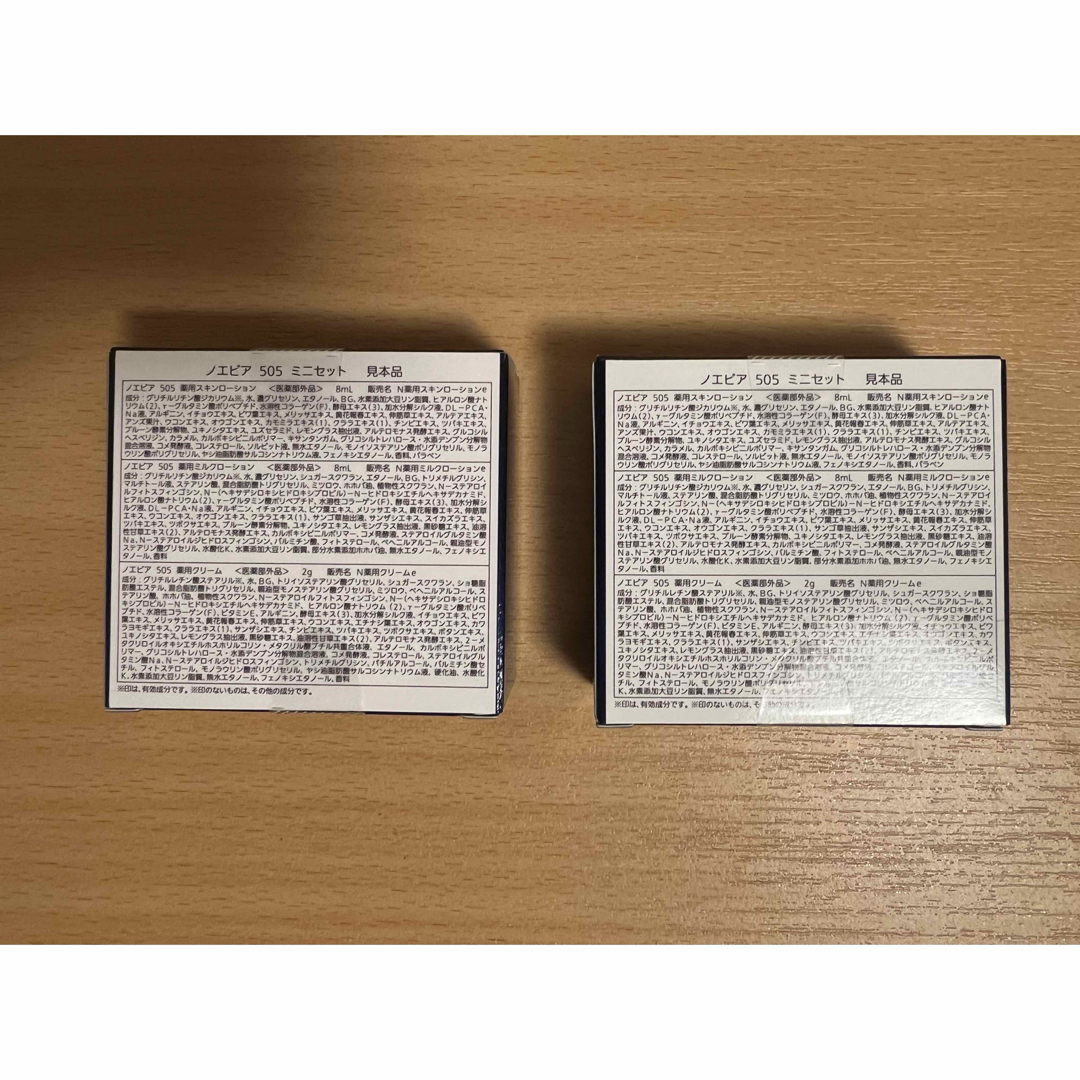 ノエビア 505 ミニセット 見本品
ノエビア 505 薬用スキンローション <医薬部外品> 8mL 販売名 N薬用スキンローションe
成分:グリチルリチン酸ジカリウム※、水、濃グリセリン、エタノール、BG、水素添加大豆リン脂質、ヒアルロン酸ナト
リウム(2)、γ-グルタミン酸ポリペプチド、水溶性コラーゲン(F)、酵母エキス(3)、加水分解シルク液、DL-PCA・
Na液、アルギニン、イチョウエキス、ビワ葉エキス、メリッサエキス、黄花報春エキス、伸筋草エキス、アルテアエキス、
アンズ果汁、ウコンエキス、オウゴンエキス、カモミラエキス(1)、クララエキス(1)、チンピエキス、ツバキエキス、
プルーン酵素分解物、ユキノシタエキス、ユズセラミド、レモングラス抽出液、アルテロモナス発酵エキス、グルコシル
ヘスペリジン、カラメル、カルボキシビニルポリマー、キサンタンガム、グリコシルトレハロース・水添デンプン分解物
混合溶液、コメ発酵液、コレステロール、ソルビット液、無水エタノール、モノイソステアリン酸ポリグリセリル、モノラ
ウリン酸ポリグリセリル、ヤシ油脂肪酸サルコシンナトリウム液、フェノキシエタノール、香料、パラベン
ノエビア 505 薬用ミルクローション <医薬部外品> 8mL 販売名 N薬用ミルクローションe
成分:グリチルリチン酸ジカリウム※、水、濃グリセリン、シュガースクワラン、エタノール、BG、トリメチルグリシン、
マルチトール液、ステアリン酸、混合脂肪酸トリグリセリル、ミツロウ、ホホバ油、植物性スクワラン、N-ステアロイ
ルフィトスフィンゴシン、N-(ヘキサデシロキシヒドロキシプロピル)-N-ヒドロキシエチルヘキサデカナミド、
ヒアルロン酸ナトリウム(2)、γ-グルタミン酸ポリペプチド、水溶性コラーゲン(F)、酵母エキス(3)、加水分解シ
ルク液、DL-PCA・Na液、アルギニン、イチョウエキス、ビワ葉エキス、メリッサエキス、黄花報春エキス、伸筋草
エキス、ウコンエキス、オウゴンエキス、クララエキス(1)、サンゴ草抽出液、サンザシエキス、スイカズラエキス、
ツバキエキス、ツボクサエキス、プルーン酵素分解物、ユキノシタエキス、レモングラス抽出液、黒砂糖エキス、油溶
性甘草エキス(2)、アルテロモナス発酵エキス、カルボキシビニルポリマー、コメ発酵液、ステアロイルグルタミン酸
Na、N-ステアロイルジヒドロスフィンゴシン、パルミチン酸、フィトステロール、ベヘニルアルコール、親油型モノ
ステアリン酸グリセリル、水酸化K、水素添加大豆リン脂質、部分水素添加ホホバ油、無水エタノール、フェノキシエ
タノール、香料
ノエビア 505 薬用クリーム <医薬部外品> 2g 販売名 N薬用クリームe
成分:グリチルレチン酸ステアリル※、水、BG、トリイソステアリン酸グリセリル、シュガースクワラン、ショ糖脂
肪酸エステル、混合脂肪酸トリグリセリル、親油型モノステアリン酸グリセリル、ミツロウ、ベヘニルアルコール、ス
テアリン酸、ホホバ油、植物性スクワラン、N-ステアロイルフィトスフィンゴシン、N-(ヘキサデシロキシヒドロ
キシプロピル)-N-ヒドロキシエチルヘキサデカナミド、ヒアルロン酸ナトリウム(2)、γ-グルタミン酸ポリペ
プチド、水溶性コラーゲン(F)、ビタミンE、アルギニン、酵母エキス(3)、加水分解シルク液、イチョウエキス、ビワ
葉エキス、メリッサエキス、黄花報春エキス、伸筋草エキス、ウコンエキス、エチナシ葉エキス、オウゴンエキス、カワ
ラヨモギエキス、クララエキス(1)、サンザシエキス、チンピエキス、ツバキエキス、ツボクサエキス、ボタンエキス、
ユキノシタエキス、レモングラス抽出液、黒砂糖エキス、油溶性甘草エキス(2)、アルテロモナス発酵エキス、2-メ
タクリロイルオキシエチルホスホリルコリン・メタクリル酸ブチル共重合体液、エタノール、カルボキシビニルポリ
マー、グリコシルトレハロース・水添デンプン分解物混合溶液、コメ発酵液、コレステロール、ステアロイルグル
タミン酸Na、N-ステアロイルジヒドロスフィンゴシン、トリメチルグリシン、バチルアルコール、パルミチン酸セ
チル、フィトステロール、モノラウリン酸ポリグリセリル、ヤシ油脂肪酸サルコシンナトリウム液、硬化油、水酸化
K、水素添加大豆リン脂質、無水エタノール、フェノキシエタノール、香料
※印は、有効成分です。※印のないものは、その他の成分です。
ノエビア 505 ミニセット 見本品
ノエビア 505 薬用スキンローション <医薬部外品> 8mL 販売名 N薬用スキンローションe
成分:グリチルリチン酸ジカリウム※、水、濃グリセリン、エタノール、BG、水素添加大豆リン脂質、ヒアルロン酸ナト
リウム(2)、γ-グルタミン酸ポリペプチド、水溶性コラーゲン(F)、酵母エキス(3)、加水分解シルク液、DL-PCA・
Na液、アルギニン、イチョウエキス、ビワ葉エキス、メリッサエキス、黄花報春エキス、伸筋草エキス、アルテアエキス、
アンズ果汁、ウコンエキス、オウゴンエキス、カモミラエキス(1)、クララエキス(1)、チンピエキス、ツバキエキス、
プルーン酵素分解物、ユキノシタエキス、ユズセラミド、レモングラス抽出液、アルテロモナス発酵エキス、グルコシル
ヘスペリジン、カラメル、カルボキシビニルポリマー、キサンタンガム、グリコシルトレハロース・水添デンプン分解物
混合溶液、コメ発酵液、コレステロール、ソルビット液、無水エタノール、モノイソステアリン酸ポリグリセリル、モノラ
ウリン酸ポリグリセリル、ヤシ油脂肪酸サルコシンナトリウム液、フェノキシエタノール、香料、パラベン
ノエビア 505 薬用ミルクローション <医薬部外品> 8mL 販売名 N薬用ミルクローションe
成分:グリチルリチン酸ジカリウム※、水、濃グリセリン、シュガースクワラン、エタノール、BG、トリメチルグリシン、
マルチトール液、ステアリン酸、混合脂肪酸トリグリセリル、ミツロウ、ホホバ油、植物性スクワラン、N-ステアロイ
ルフィトスフィンゴシン、N-(ヘキサデシロキシヒドロキシプロピル)-N-ヒドロキシエチルヘキサデカナミド、
ヒアルロン酸ナトリウム(2)、γ-グルタミン酸ポリペプチド、水溶性コラーゲン(F)、酵母エキス(3)、加水分解シ
ルク液、DL-PCA・Na液、アルギニン、イチョウエキス、ビワ葉エキス、メリッサエキス、黄花報春エキス、伸筋草
エキス、ウコンエキス、オウゴンエキス、クララエキス(1)、サンゴ草抽出液、サンザシエキス、スイカズラエキス、
ツバキエキス、ツボクサエキス、プルーン酵素分解物、ユキノシタエキス、レモングラス抽出液、黒砂糖エキス、油溶
性甘草エキス(2)、アルテロモナス発酵エキス、カルボキシビニルポリマー、コメ発酵液、ステアロイルグルタミン酸
Na、N-ステアロイルジヒドロスフィンゴシン、パルミチン酸、フィトステロール、ベヘニルアルコール、親油型モノ
ステアリン酸グリセリル、水酸化K、水素添加大豆リン脂質、部分水素添加ホホバ油、無水エタノール、フェノキシエ
タノール、香料
ノエビア 505 薬用クリーム <医薬部外品> 2g 販売名 N薬用クリームe
成分:グリチルレチン酸ステアリル※、水、BG、トリイソステアリン酸グリセリル、シュガースクワラン、ショ糖脂
肪酸エステル、混合脂肪酸トリグリセリル、親油型モノステアリン酸グリセリル、ミツロウ、ベヘニルアルコール、ス
テアリン酸、ホホバ油、植物性スクワラン、N-ステアロイルフィトスフィンゴシン、N-(ヘキサデシロキシヒドロ
キシプロピル)-N-ヒドロキシエチルヘキサデカナミド、ヒアルロン酸ナトリウム(2)、γ-グルタミン酸ポリペ
プチド、水溶性コラーゲン(F)、ビタミンE、アルギニン、酵母エキス(3)、加水分解シルク液、イチョウエキス、ビワ
葉エキス、メリッサエキス、黄花報春エキス、伸筋草エキス、ウコンエキス、
ラヨモギエキス、クララエキス(1)、サンザシエキス、
ユキノシタエキス、レモングラス抽出液、黒砂糖エキス、
タクリロイルオキシエチルホスホリルコリン・メタクリル酸
マー、グリコシルトレハロース・水添デンプン
タミン酸Na、N-ステアロイルジヒドロスフィンゴシン、
チル、フィトステロール、モノラウリン酸ポリグリセリル、
K、水素添加大豆リン脂質、無水エタノール、
※印は、有効成分です。※印のないものは、その他の成分です。